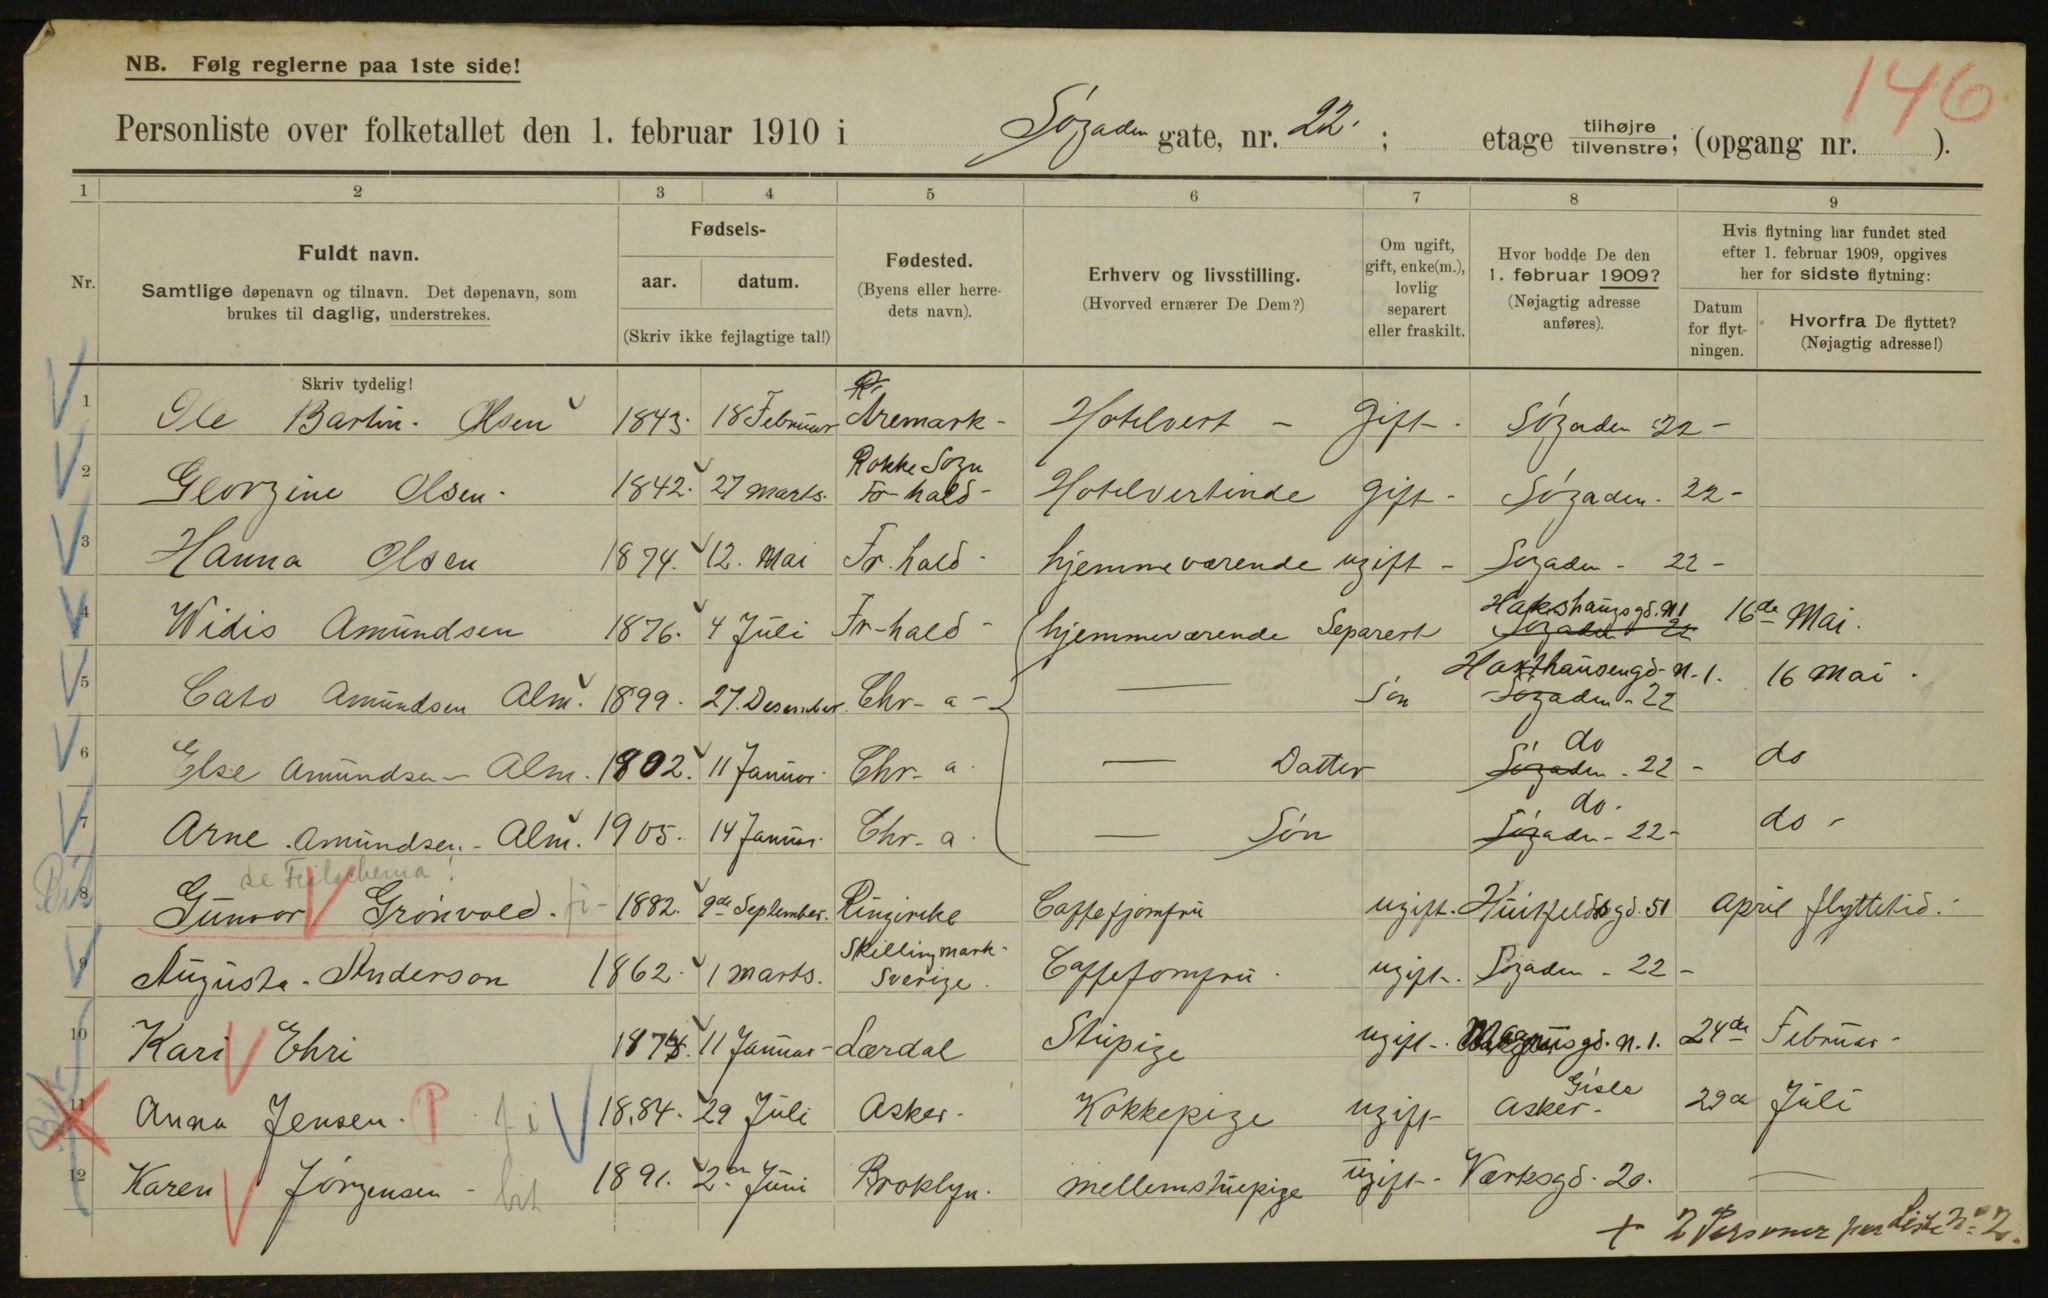 146
NB. Følg reglerne paa 1ste side!
Personliste over folketallet den 1. februar 1910 i Søgaden gate, nr. 22. ; etage tilhøjre tilvenstre; (opgang nr. ).
1 2 3 4 5 6 7 8 9
Nr.
Fuldt navn.
Samtlige døpenavn og tilnavn. Det døpenavn, som
brukes til daglig, understrekes.
Fødsels-
aar. datum.
(Skriv ikke fejlagtige tal!)
Fødested.
(Byens eller herre-
dets navn).
Erhverv og livsstilling.
(Hvorved ernærer De Dem?)
Om ugift,
gift, enke(m.),
lovlig
separert
eller fraskilt.
Hvor bodde De den
1. februar 1909?
(Nøjagtig adresse
anføres).
Hvis flytning har fundet sted
efter 1. februar 1909, opgives
her for sidste flytning:
Datum
for flyt-
ningen.
Hvorfra De flyttet?
(Nøjagtig adresse!)
Skriv tydelig!
1 Ole Bartin. Olsen 1843. 18 Februar Aremark - Hotelvert - Gift - . Søgaden 22 -
Rokke Sogn
2 Georgine Olsen. 1842. 27 marts. Fr-hald - Hotelvertinde Gift - Søgaden. 22 -
3 Hanna Olsen 1874. 12. Mai Fr. hald - hjemmeværende ugift - Søgaden - 22 -
Hakshaugsgd. N 1
4 Widis Amundsen 1876. 4 Juli Fr-hald - hjemmeværende Separert Søgaden 22 16de Mai.
Haxthausengd. N. 1.
5 Cato Amundsen Alm. 1899. 27. Desember. Chr - a - — Søn Søgaden - 22 16 Mai .
do
6 Else Amundsen - Alm. 1902. 11 Januar. Chr - a. — Datter Søgaden - 22 - do
do.
7 Arne . Amundsen. - Alm. 1905. 14 Januar. Chr - a. — Søn Søgaden - 22 - do -
se Feilschema!
8 Gunvor Grønvold. fi - 1882. 9de September. Ringirike Caffefjomfru ugift. Huitfeldsgd. 51 April flyttetid.
Skillingmark -
9 Augusta. Anderson 1862. 1 marts. Sverige. Caffefomfru. ugift. Søgaden - 22 -
10 Kari Ehri 11 Januar - Lærdal Stupige ugift - . Magnusgd. N. 1. 24de Februar -
Gisle
11 Anna Jensen. P fi 1884. 29 Juli Asker - Kokkepige ugift - Asker - 29a Juli
12 Karen Jørgensen - bit 1891. 2en Juni Broklyn. mellemstuepige ugift - . Værksgd. 20. —
+ 2 Personer paa Liste No 2.